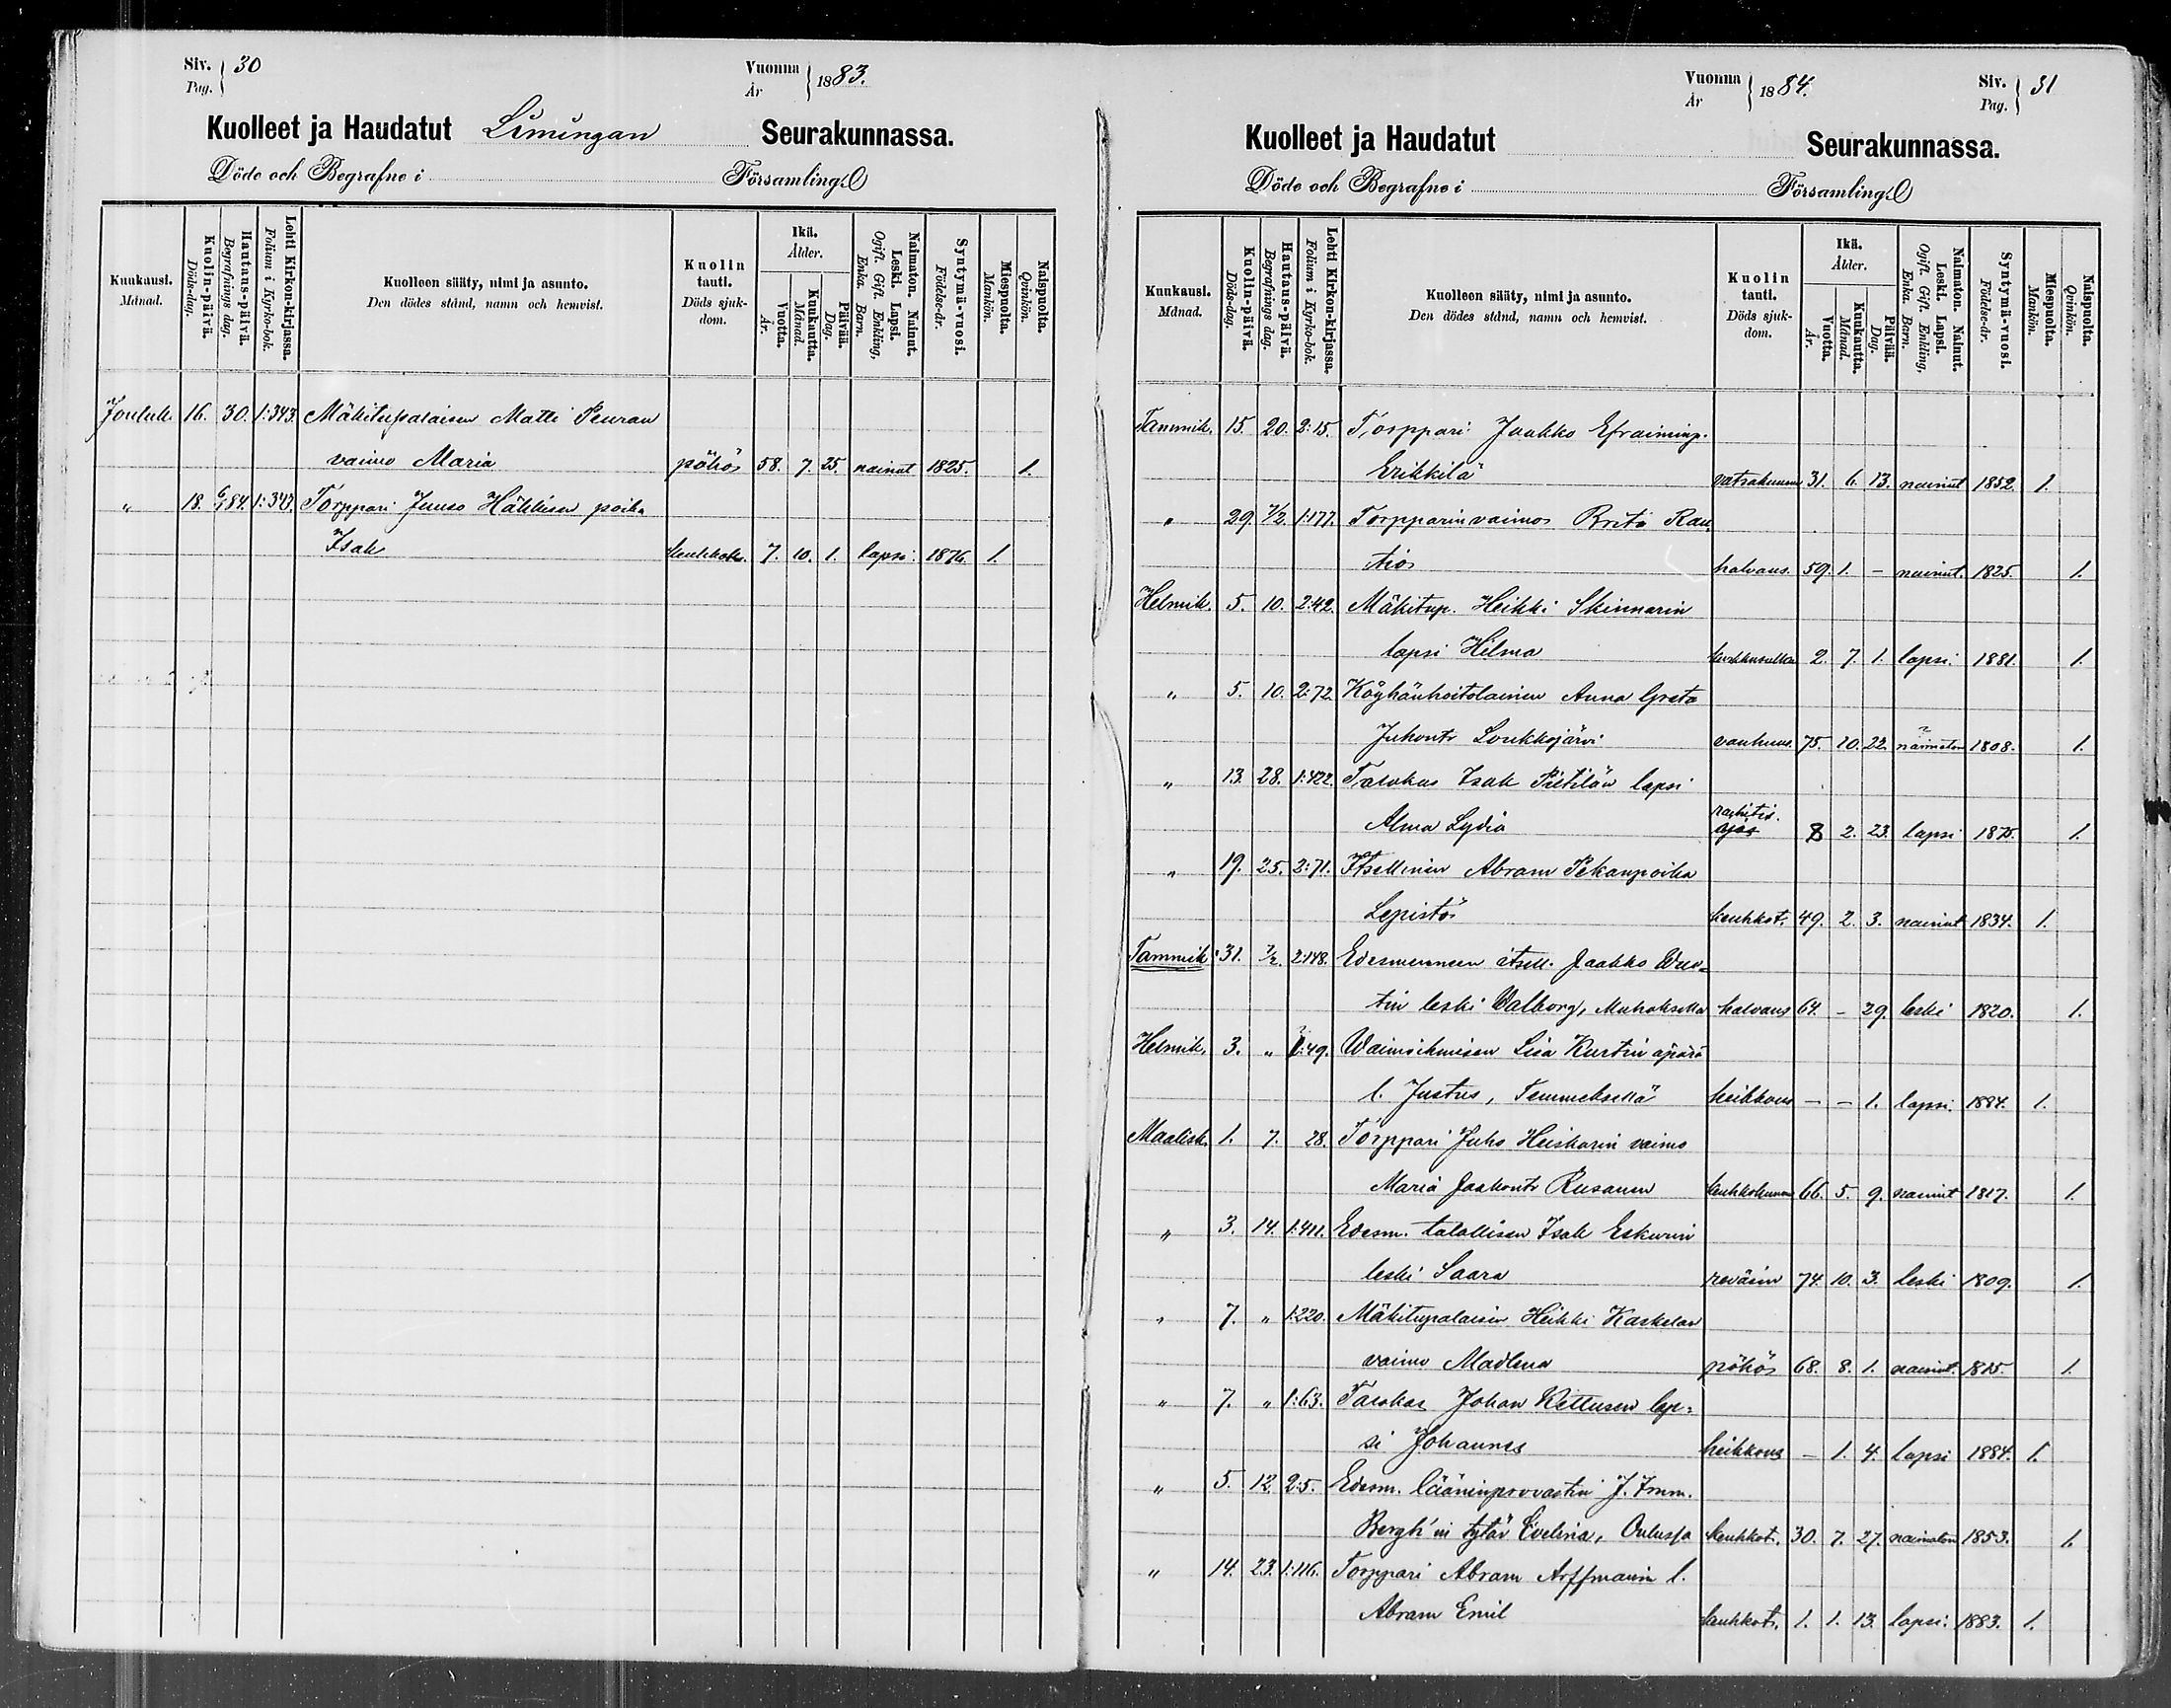 Siv. 30
Pag.
Vuonna 1883.
År
Kuolleet ja Haudatut Limingan Seurakunnassa.
Döde och Begrafne i Församling
Kuukausi. Månad.
Kuolin-päivä. Döds-dag.
Hautaus-päivä. Begrafnings dag.
Lehti Kirkon-kirjassa. Folium i Kyrko-bok.
Kuolleen sääty, nimi ja asunto.
Den dödes stånd, namn och hemvist.
Kuolin tauti. Döds sjuk-dom.
Ikä. Ålder.
Vuotta. År.
Kuukautta. Månad.
Päivää. Dag.
Naimaton. Nainut. Leski. Lapsi. Ogift. Gift. Enkling, Enka. Barn.
Syntymä-vuosi. Födelse-år.
Miespuolta. Mankön.
Naispuolta. Qvinkön.
Jouluk. 16. 30. 1:343. Mäkitupalaisen Matti Peuran
vaimo Maria pöhö 58. 7. 25. nainut 1825. 1.
" 18. 6/1 84. 1:343. Torppari Juuso Häkkisen poika
Isak keuhkok. 7. 10. 1. lapsi 1876. 1.
Vuonna 1884.
År
Siv. 31
Pag.
Kuolleet ja Haudatut Seurakunnassa.
Döde och Begrafne i Församling
Kuukausi. Månad.
Kuolin-päivä. Döds-dag.
Hautaus-päivä. Begrafnings dag.
Lehti Kirkon-kirjassa. Folium i Kyrko-bok.
Kuolleen sääty, nimi ja asunto.
Den dödes stånd, namn och hemvist.
Kuolin tauti. Döds sjuk-dom.
Ikä. Ålder.
Vuotta. År.
Kuukautta. Månad.
Päivää. Dag.
Naimaton. Nainut. Leski. Lapsi. Ogift. Gift. Enkling, Enka. Barn.
Syntymä-vuosi. Födelse-år.
Miespuolta. Mankön.
Naispuolta. Qvinkön.
Tammik. 15. 20. 2:15. Torppari Jaakko Efraiminp.
Erikkilä vatsakuume 31. 6. 13. nainut 1852. 1.
" 29. 7/2 1:177. Torpparinvaimo Brita Rau-
tio halvaus. 59. 1. - nainut. 1825. 1.
Helmik. 5. 10. 2:42. Mäkitup. Heikki Skinnarin
lapsi Hilma 2. 7. 1. lapsi 1881. 1.
" 5. 10. 2:72. Köyhänhoitolainen Anna Greta
Juhontr Loukkojärvi vanhuus. 75. 10. 22. naimaton 1808. 1.
" 13. 28. 1:422. Talokas Isak Pietilän lapsi
rachitis.
Alma Lydia 8 2. 23. lapsi 1875. 1.
" 19. 25. 2:71. Itsellinen Abram Pekanpoika
Lepistö keuhkot. 49. 2. 3. nainut 1834. 1.
Tammik. 31. 7/2. 2:148. Edesmenneen itsell. Jaakko
tin leski Walborg, Muhoksella halvaus 64. - 29. leski 1820. 1.
Helmik. 3. " 1:49. Waimoihmisen Liisa Kurtin äpärä
l. Justus, Temmeksellä heikkous - - 1. lapsi. 1884. 1.
Maalisk. 1. 7. 28. Torppari Juho Heiskarin vaimo
Maria Jaakontr Rusanen keuhkokuume 66. 5. 9. nainut 1817. 1.
" 3. 14. 1:411. Edesm. talollisen Isak Eskurin
leski Saara reväsin 74. 10. 3. leski 1809. 1.
" 7. " 1:220. Mäkitupalaisen Heikki Kaskelan
vaimo Madlena pöhö 68. 8. 1. nainut. 1815. 1.
" 7. " 1:63. Talokas Johan Kettusen lap-
si Johannes heikkous - 1. 4. lapsi 1884. 1.
" 5. 12. 2:5. Edesm. lääninprovastin J. Imm.
Bergh'in tytär Evelina, Oulussa keuhkot. 30. 7. 27. naimaton 1853. 1.
" 14. 23. 1:116. Torppari Abram Arffmanin l.
Abram Emil keuhkot. 1. 1. 13. lapsi. 1883. 1.